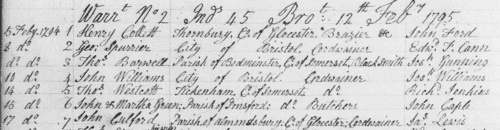 Warr.t No 2 Ind.s 45 Bro.t 12th Feb.y 1795
5 Feby. 1794 1 Henry Collett Thornbury, C.o of Glocester Brazier &c John Ford
8 d.o 2 Geo. Spurrier City of Bristol Cordwainer Edw.d F. Cann
d.o d.o 3 Tho.s Barwell Parish of Bedminster, C.o of Somerset, Black Smith Jos.h Gunning
10 d.o 4 John Williams City of Bristol. Cordwainer Jos.h Williams
14 d.o 5 Tho.s Westcott Tickenham, C. of Somerset d.o Rich.d Jenkins
15 d.o 6 John & Martha Green; Parish of d.o Butchers John Caple
17 d.o 7 John Parish of Almondsbury, C. of Glocester; Cordwainer Ja.s Lewis